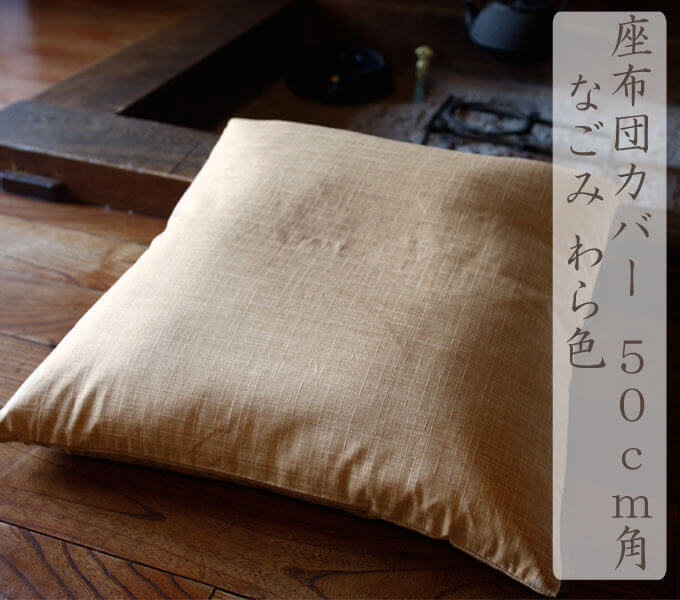 座布団カバー ５０ｃｍ角
なごみ わら色